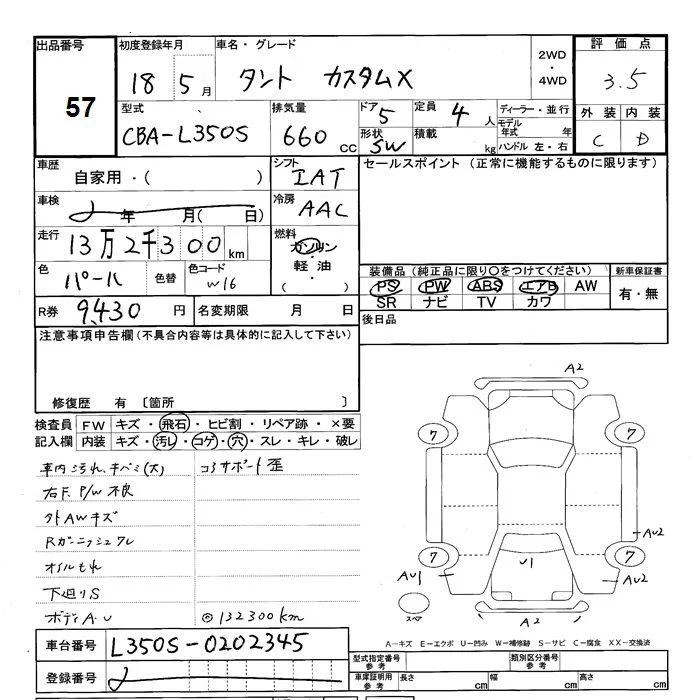 出品番号
57
初度登録年月
18 5月
車名・グレード
タント カスタムX
2WD
・
4WD
評価点
3.5
型式
CBA-L350S
排気量
660 cc
ドア
5
形状
SW
定員
4人
積載
kg
ディーラー・並行
モデル年式 年
ハンドル 左・右
外装 内装
C D
車歴
自家用・( )
シフト
IAT
セールスポイント (正常に機能するものに限ります)
車検
年 月( 日)
冷房
AAC
走行
13万2千300km
燃料
ガソリン
・
軽油
・
( )
色
パール
色替
色コード
W16
装備品 (純正品に限り○をつけてください)
新車保証書
PS PW ABS エアB AW
SR ナビ TV カワ
有・無
R券 9,430円
名変期限 月 日
後日品
注意事項申告欄(不具合内容等は具体的に記入して下さい)
修復歴 有 〔箇所 〕
検査員記入欄
FW キズ・飛石・ヒビ割・リペア跡・×要
内装 キズ・汚レ・コゲ・穴・スレ・キレ・破レ
車内汚れ、キバミ(大)
コアサポート歪
右F.P/W不良
外AWキズ
Rガーニッシュワレ
オイルもれ
下廻りS
ボディA.U
◎132300km
A2
7
7
7
7
AU2
AU2
AU1
U1
A2
スペア
A-キズ E-エクボ U-凹み W-補修跡 S-サビ C-腐食 XX-交換済
車台番号
L350S-0202345
型式指定番号
参考
類別区分番号
参考
登録番号
車庫証明用
参考
長さ cm
幅 cm
高さ cm